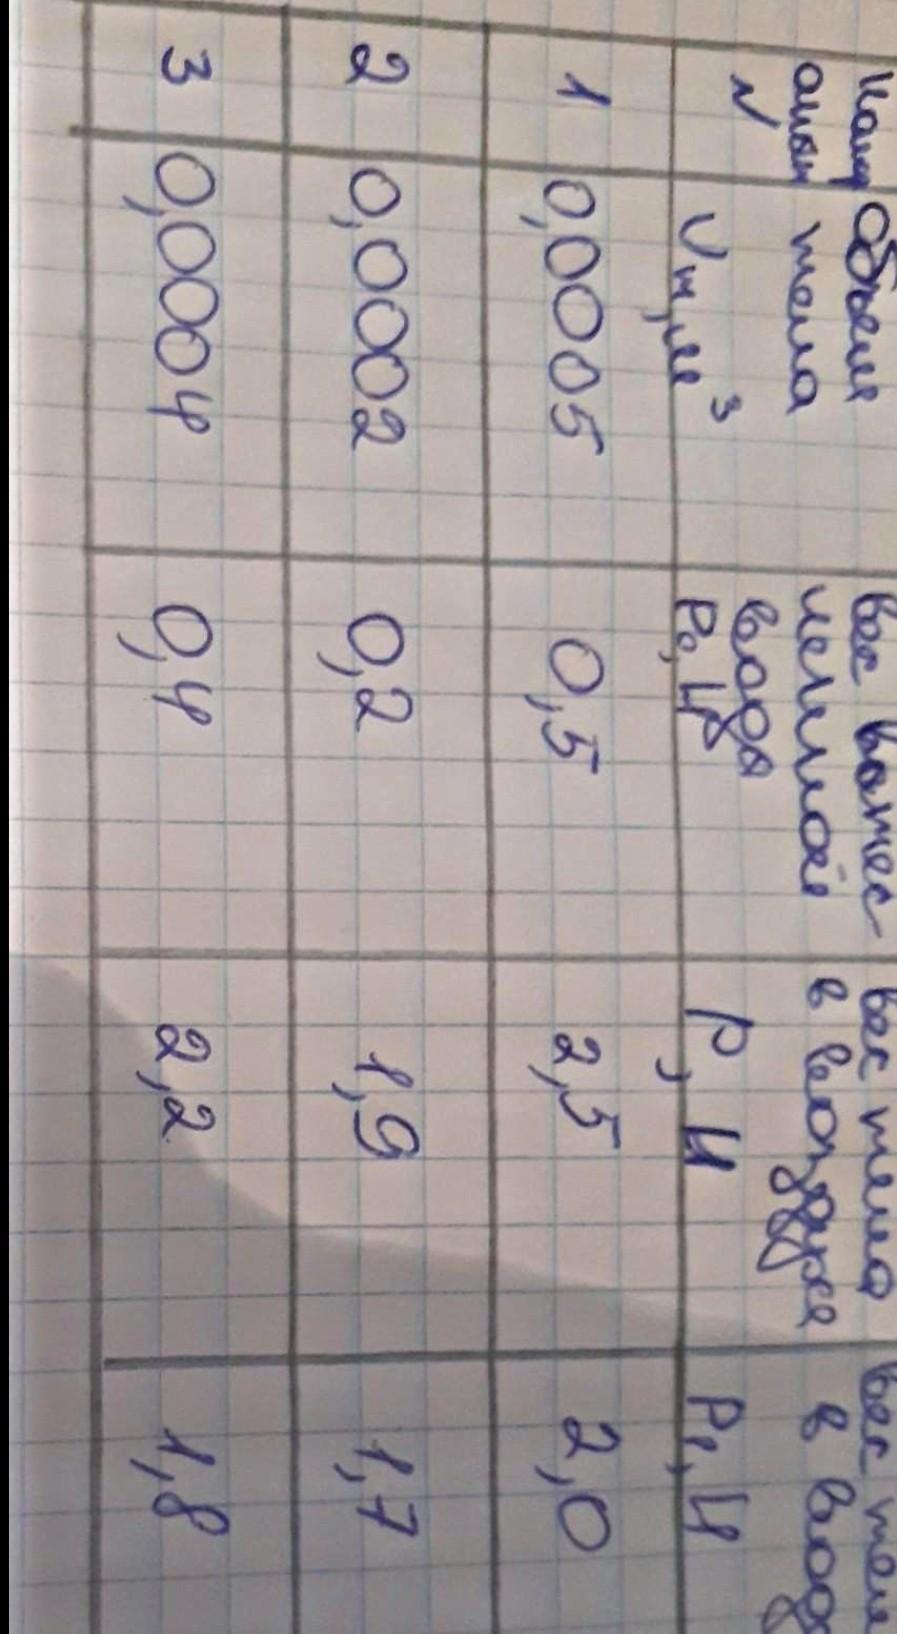 Объем
тела
Vт, м³
Вес вытес-
ненной
воды
P₀, Н
Вес тела
в воздухе
P, Н
Вес тела
в вод
P₁, Н
1 0,0005 0,5 2,5 2,0
2 0,0002 0,2 1,9 1,7
3 0,0004 0,4 2,2 1,8